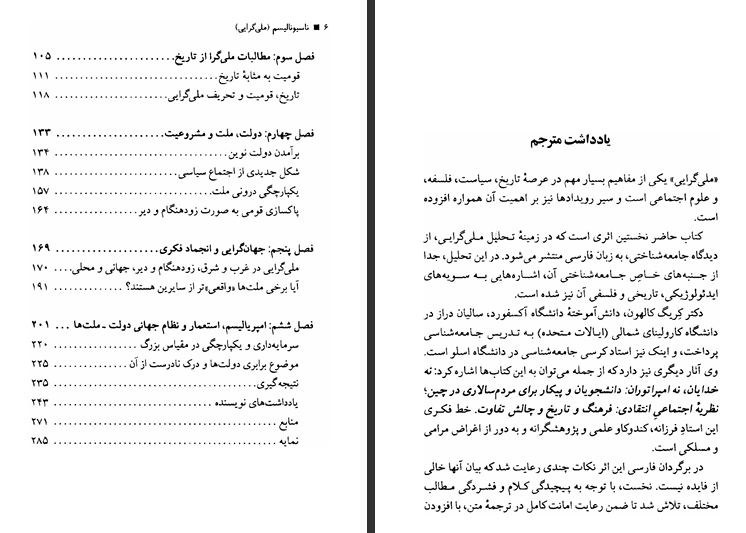 ۶ ■ ناسیونالیسم (ملی‌گرایی)
فصل سوم: مطالبات ملی‌گرا از تاریخ ..................... ۱۰۵
قومیت به مثابهٔ تاریخ ............................ ۱۱۱
تاریخ، قومیت و تحریف ملی‌گرایی ..................... ۱۱۸
فصل چهارم: دولت، ملت و مشروعیت ..................... ۱۳۳
برآمدن دولت نوین ............................ ۱۳۴
شکل جدیدی از اجتماع سیاسی ..................... ۱۳۸
یکپارچگی درونی ملت ............................ ۱۵۷
پاکسازی قومی به صورت زودهنگام و دیر ............... ۱۶۴
فصل پنجم: جهان‌گرایی و انجماد فکری ..................... ۱۶۹
ملی‌گرایی در غرب و شرق، زودهنگام و دیر، جهانی و محلی .... ۱۷۰
آیا برخی ملت‌ها «واقعی»تر از سایرین هستند؟ .............. ۱۹۱
فصل ششم: امپریالیسم، استعمار و نظام جهانی دولت ـ ملت‌ها ... ۲۰۱
سرمایه‌داری و یکپارچگی در مقیاس بزرگ ............... ۲۲۰
موضوع برابری دولت‌ها و درک نادرست از آن ............... ۲۲۵
نتیجه‌گیری ............................ ۲۳۵
یادداشت‌های نویسنده ............................ ۲۴۳
منابع ............................ ۲۷۱
نمایه ............................ ۲۸۵
یادداشت مترجم
«ملی‌گرایی» یکی از مفاهیم بسیار مهم در عرصهٔ تاریخ، سیاست، فلسفه،
و علوم اجتماعی است و سیر رویدادها نیز بر اهمیت آن همواره افزوده
است.
کتاب حاضر نخستین اثری است که در زمینهٔ تحلیل ملی‌گرایی، از
دیدگاه جامعه‌شناختی، به زبان فارسی منتشر می‌شود. در این تحلیل، جدا
از جنبه‌های خاصِ جامعه‌شناختی آن، اشاره‌هایی به سویه‌های
ایدئولوژیکی، تاریخی و فلسفی آن نیز شده است.
دکتر کریگ کالهون، دانش‌آموختهٔ دانشگاه آکسفورد، سالیان دراز در
دانشگاه کارولینای شمالی (ایالات متحده) به تدریس جامعه‌شناسی
پرداخت، و اینک نیز استاد کرسی جامعه‌شناسی در دانشگاه اسلو است.
وی آثار دیگری نیز دارد که از جمله می‌توان به این کتاب‌ها اشاره کرد: نه
خدایان، نه امپراتوران: دانشجویان و پیکار برای مردم‌سالاری در چین؛
نظریهٔ اجتماعی انتقادی: فرهنگ و تاریخ و چالش تفاوت. خط فکری
این استادِ فرزانه، کندوکاو علمی و پژوهشگرانه و به دور از اغراض مرامی
و مسلکی است.
در برگردان فارسی این اثر نکات چندی رعایت شد که بیان آنها خالی
از فایده نیست. نخست، با توجه به پیچیدگی کلام و فشردگی مطالب
مختلف، تلاش شد تا ضمن رعایت امانت کامل در ترجمهٔ متن، با افزودن